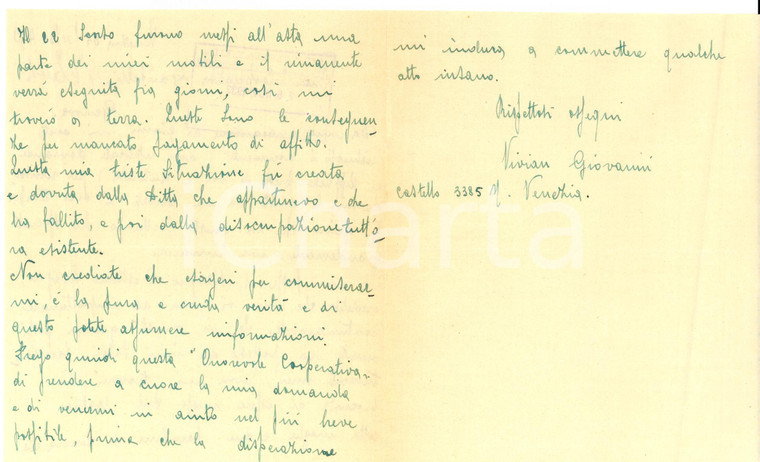 Il 22 Scorso furono messi all'asta una
parte dei miei mobili e il rimanente
verrá eseguita fra giorni, cosi mi
troveró a terra. Queste sono le conseguen-
ze per mancato pagamento di affitto.
Questa mia triste Situazione fú creata
e dovuta dalla Ditta che appartenevo e che
ha fallito, e poi dalla disocupazione tutt'ó-
ra esistente.
Non crediate che esageri per commiserar-
mi, é la pura e cruda veritá e di
questo potete assumere informazioni.
Prego quindi questa "Onorevole Cooperativa"
di prendere a cuore la mia domanda
e di venirmi in aiuto nel piú breve
possibile, prima che la disperazione
mi induca a commettere qualche
atto insano.
Rispettosi ossequi
Vivian Giovanni
Castello 3385 N. Venezia.
iCharta